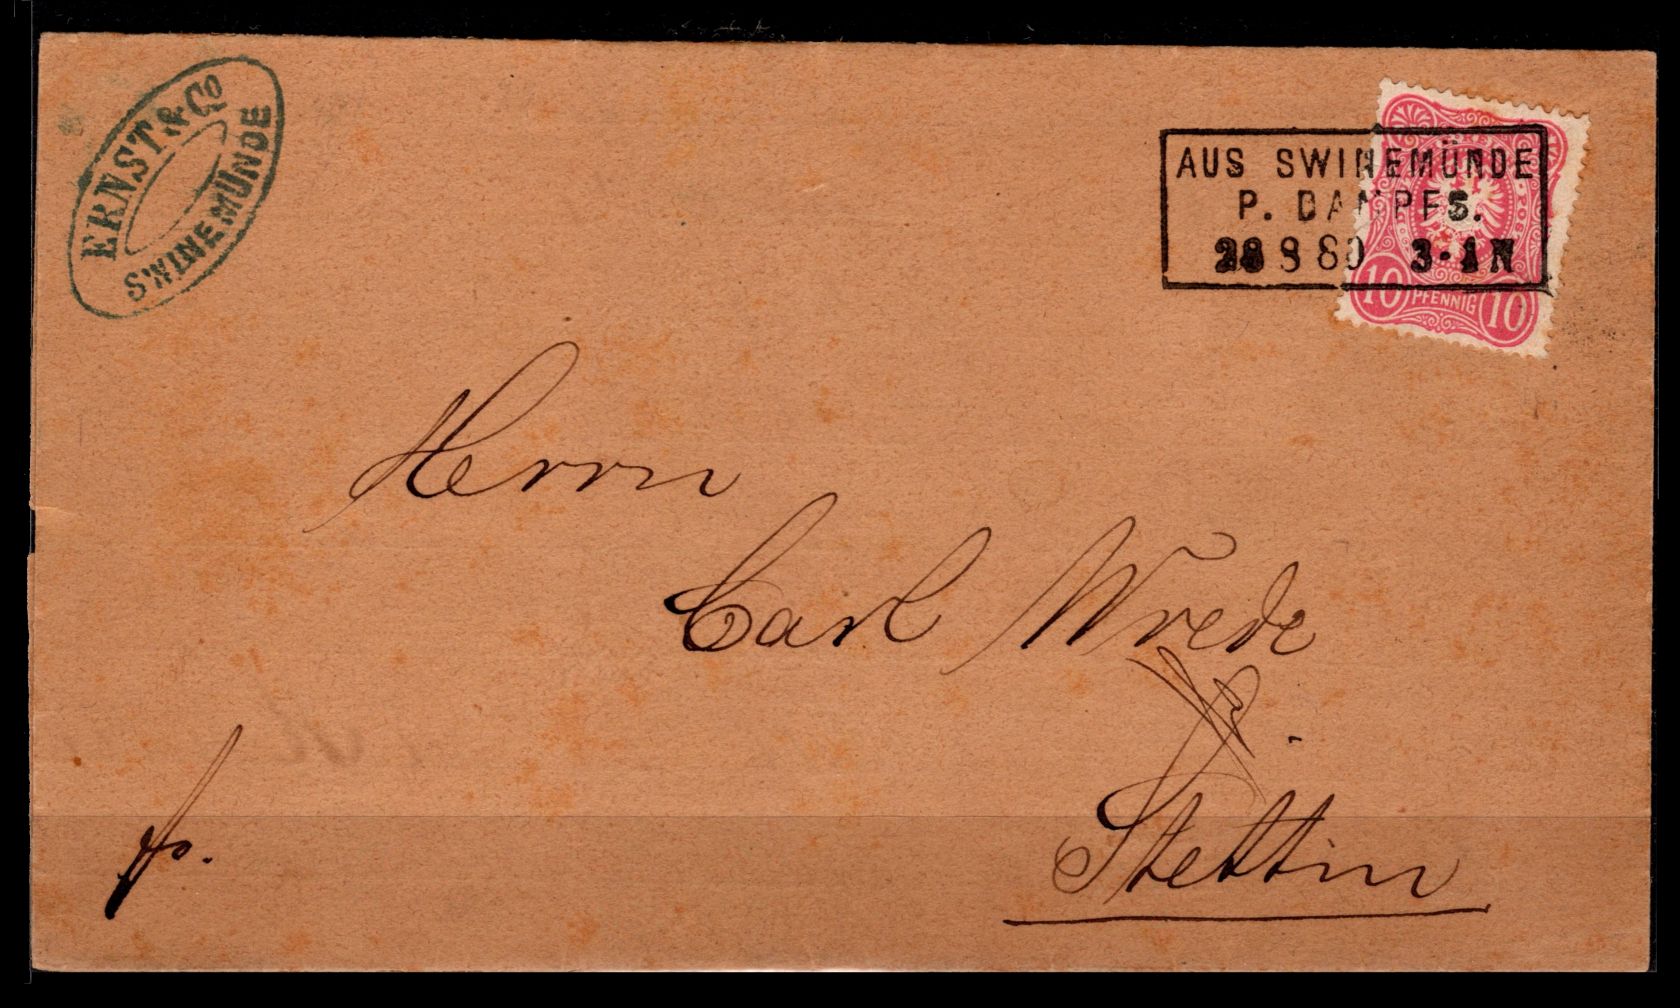 ERNST & Co
SWINEMÜNDE
AUS SWINEMÜNDE
P. DAMPFS.
28 8 80 3-4 N
10 PFENNIG 10
Herrn
Carl Wrede
Stettin
fr.